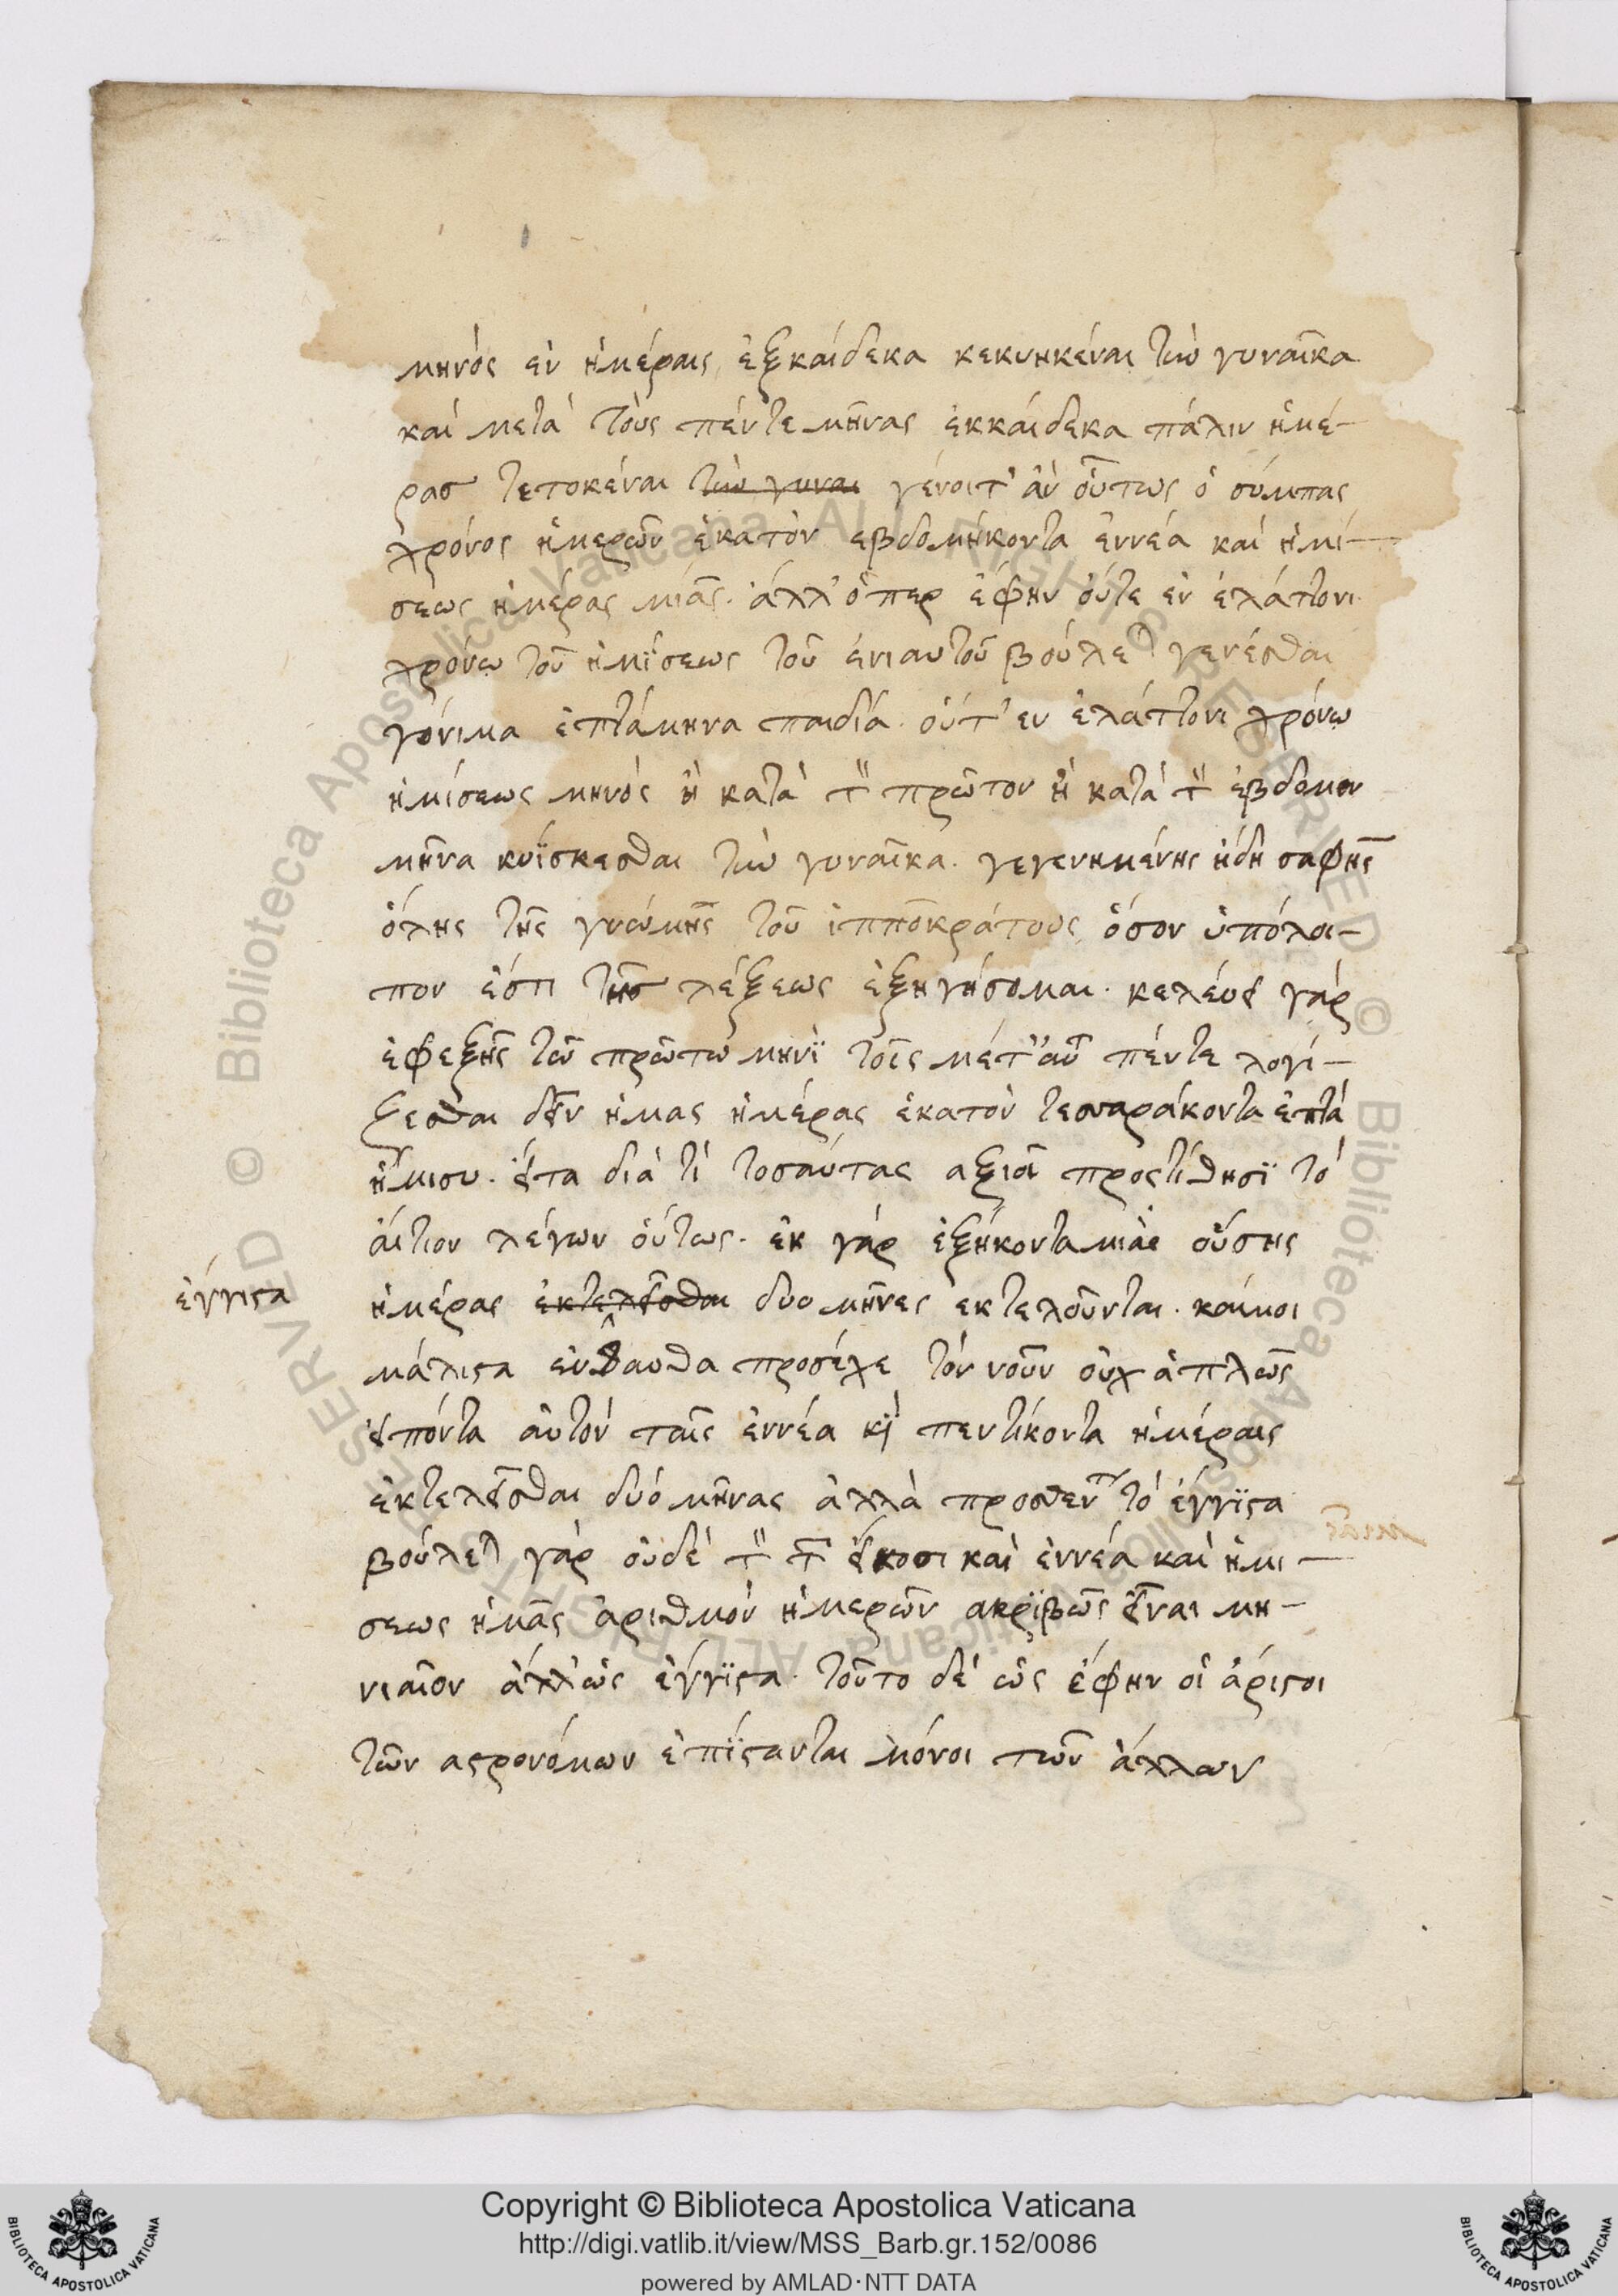 μηνὸς ἐν ἡμέραις ἑξκαίδεκα κεκυηκέναι τὴν γυναῖκα
καὶ μετὰ τοὺς πέντε μῆνας ἑκκαίδεκα πάλιν ἡμέ-
ρας τετοκέναι τὴν γυναι γένοιτ' ἂν οὕτως ὁ σύμπας
χρόνος ἡμερῶν ἑκατὸν ἑβδομήκοντα ἐννέα καὶ ἡμί-
σεως ἡμέρας μιᾶς. ἀλλ' ὅπερ ἔφην οὔτε ἐν ἐλάττονι
χρόνω τοῦ ἡμίσεως τοῦ ἐνιαυτοῦ βούλεται γενέσθαι
γόνιμα ἑπτάμηνα παιδία. οὔτ' ἐν ἐλάττονι χρόνω
ἡμίσεως μηνὸς ἢ κατὰ τὸν πρῶτον ἢ κατὰ τὸν ἕβδομον
μῆνα κυΐσκεσθαι τὴν γυναῖκα. γεγενημένης ἤδη σαφῆς
ὅλης τῆς γνώμης τοῦ ἱπποκράτους ὅσον ὑπόλοι-
πον ἐστι τῆς λέξεως ἐξηγήσομαι. κελεύει γὰρ
ἐφεξῆς τῶ πρώτω μηνὶ τοῖς μετ' αὐτὸν πέντε λογί-
ζεσθαι δεῖν ἡμας ἡμέρας ἑκατὸν τεσσαράκοντα ἑπτὰ
ἥμισυ. εἶτα διὰ τί τοσαύτας ἀξιοῖ προστίθησϊ τὸ
αἴτιον λέγων οὕτως. ἐκ γὰρ ἑξήκοντα μιᾶς οὔσης
ἡμέρας ἐκτελεῖσθαι δύο μῆνες ἐκτελοῦνται. καί μοι
ἔγγιστα
μάλιστα ἐνθαυθα προσέχε τὸν νοῦν οὐχ ἁπλῶς
εἰπόντα αὐτὸν ταῖς ἐννέα καὶ πεντίκοντα ἡμέραις
ἐκτελεῖσθαι δύο μῆνας ἀλλὰ προσθέντα τὸ ἔγγϊστα
βούλεται γὰρ οὐδὲ τὸν τῶν εἴκοσι καὶ ἐννέα καὶ ἡμι-
σεως ἡμᾶς ἀριθμὸν ἡμερῶν ἀκρϊβῶς εἶναι μη-
νιαῖον ἀλλ' ὡς ἔγγϊστα. τοῦτο δὲ ὡς ἔφην οἱ ἄριστοι
τῶν ἀστρονόμων ἐπίστανται μόνοι τῶν ἄλλων
Copyright © Biblioteca Apostolica Vaticana
http://digi.vatlib.it/view/MSS_Barb.gr.152/0086
powered by AMLAD·NTT DATA
BIBLIOTECA APOSTOLICA VATICANA
BIBLIOTECA APOSTOLICA VATICANA